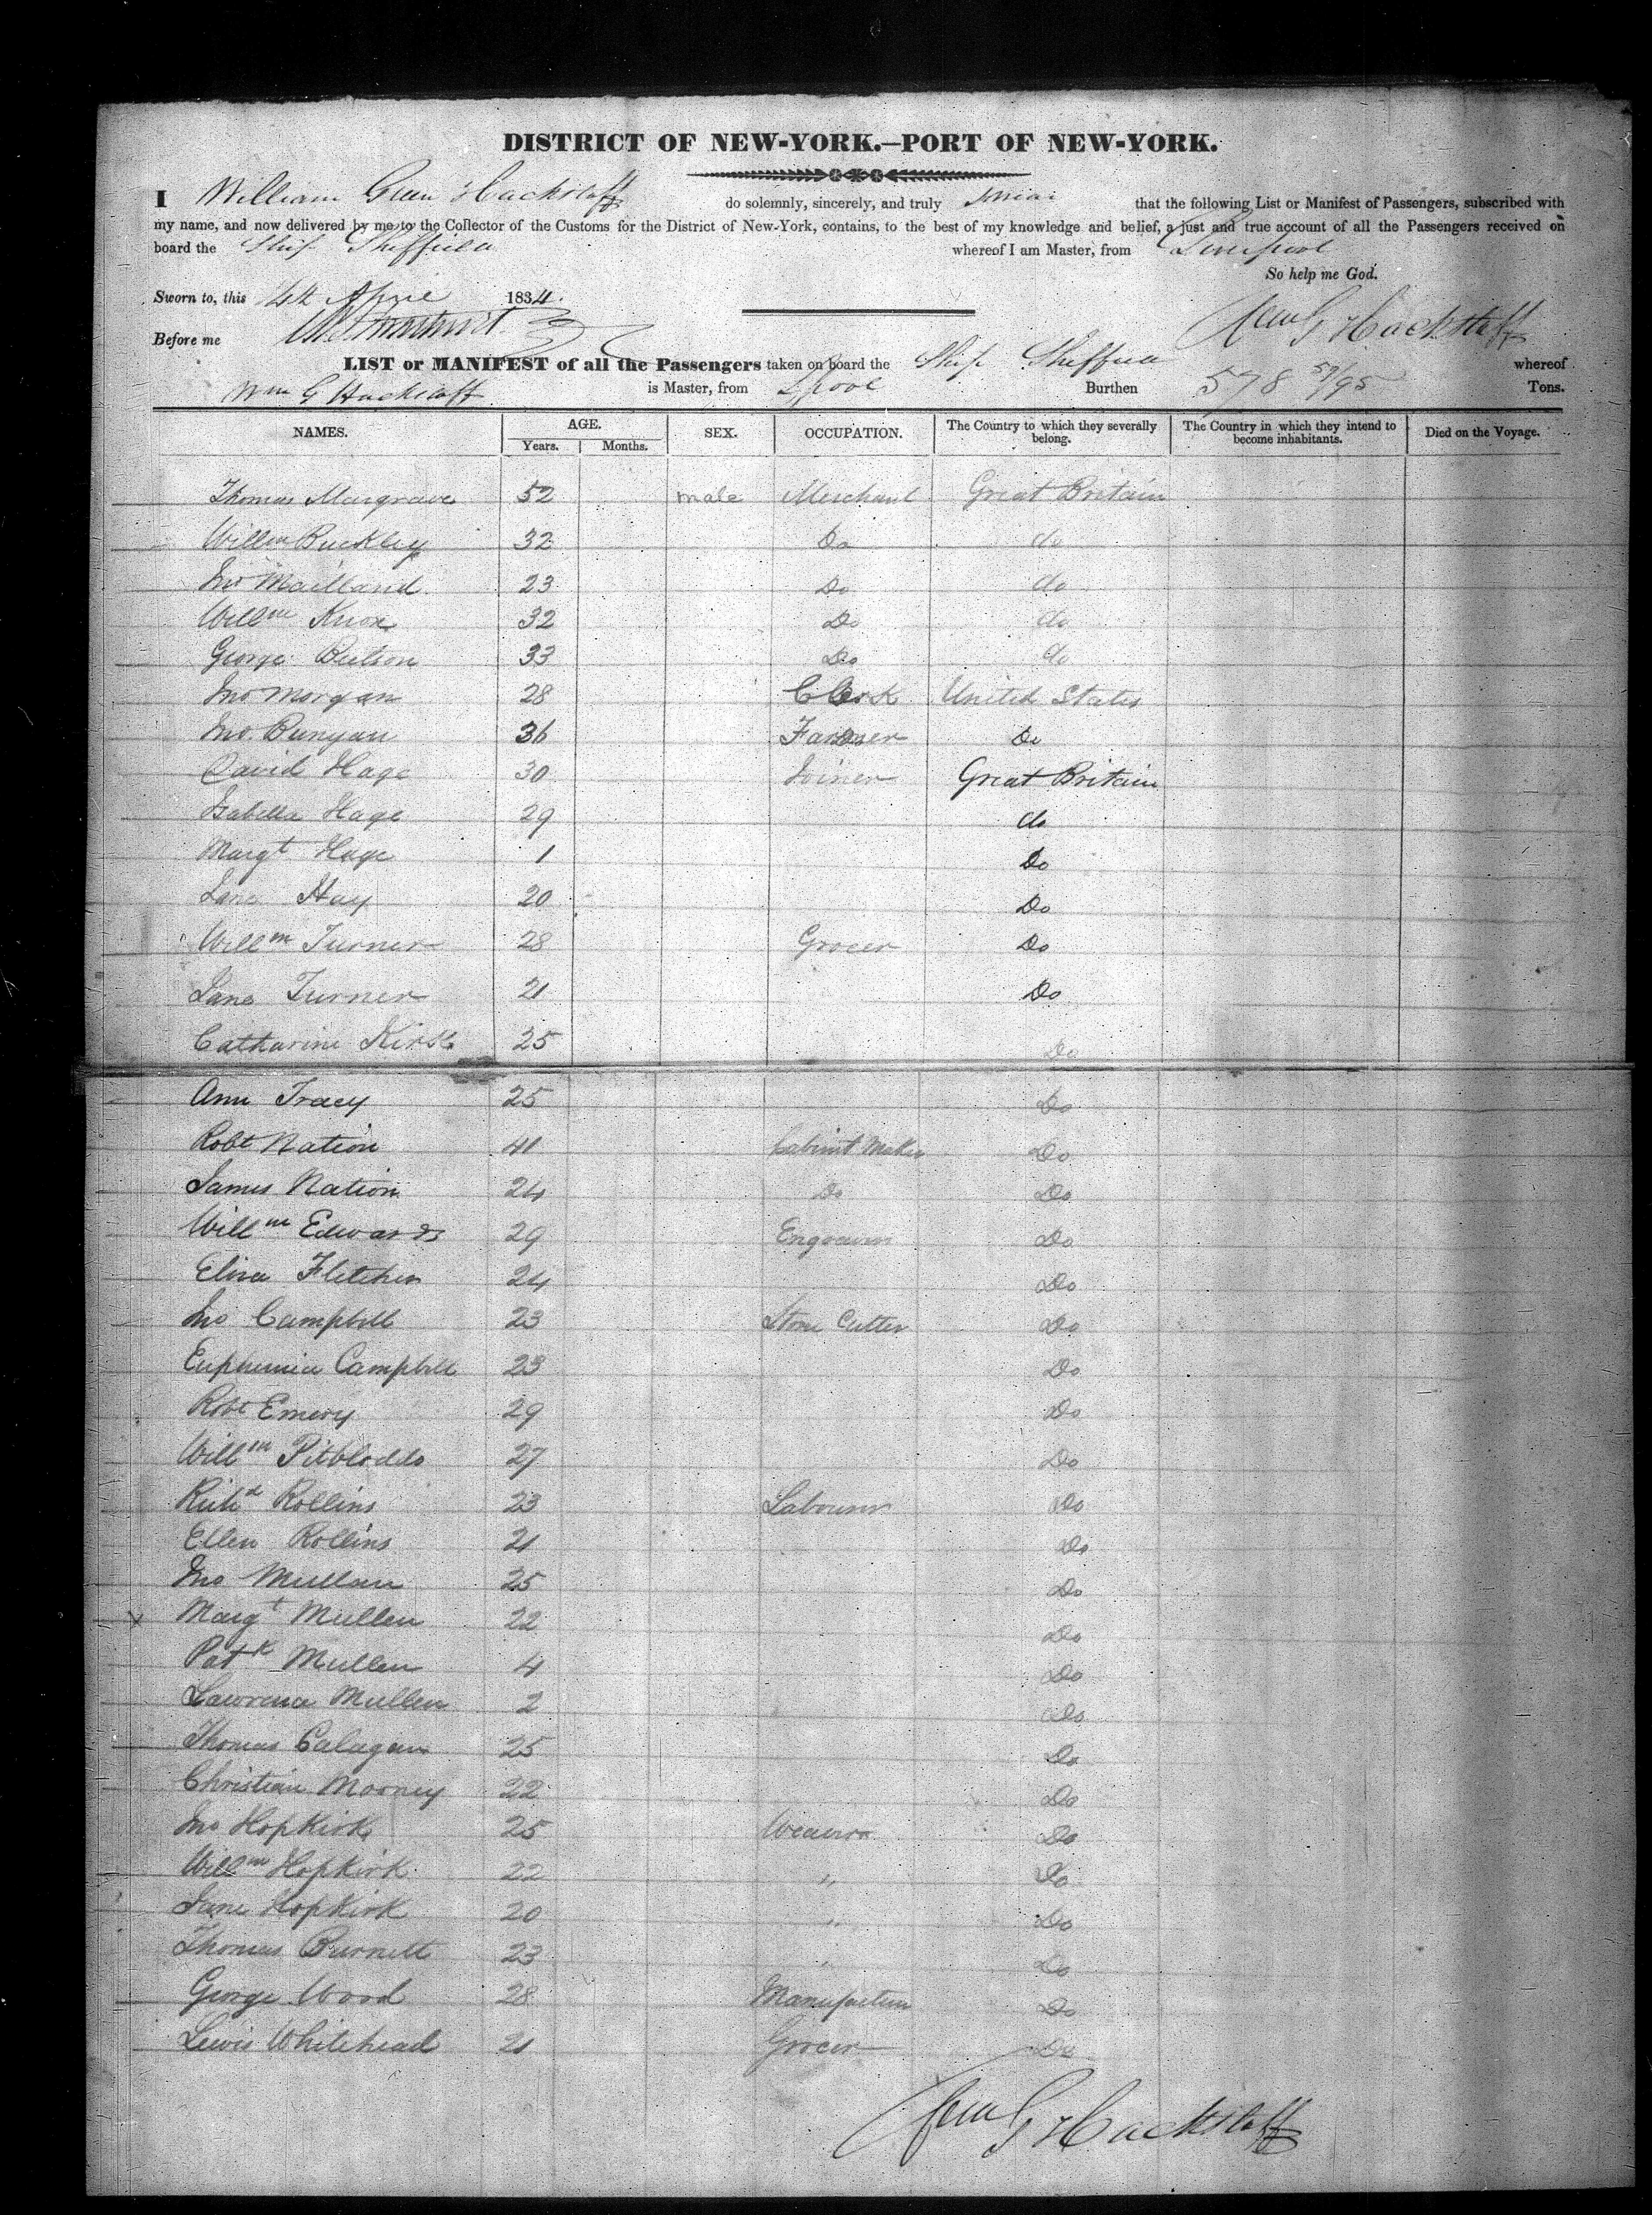 DISTRICT OF NEW-YORK.—PORT OF NEW-YORK.
I William Green Hackstaff do solemnly, sincerely, and truly swear that the following List or Manifest of Passengers, subscribed with
my name, and now delivered by me to the Collector of the Customs for the District of New-York, contains, to the best of my knowledge and belief, a just and true account of all the Passengers received on
board the Ship Sheffield whereof I am Master, from Liverpool
So help me God.
Sworn to, this 4th April 1834.
Before me Wm G Hackstaff
LIST or MANIFEST of all the Passengers taken on board the Ship Sheffield whereof
Wm G Hackstaff is Master, from Lpool Burthen 578 57/95 Tons.
NAMES. AGE. Years. Months. SEX. OCCUPATION. The Country to which they severally belong. The Country in which they intend to become inhabitants. Died on the Voyage.
Thomas Margrave 52 male Merchant Great Britain
Willm Buckley 32 Do do
Jno Mailland 23 Do do
Willm Knox 32 Do do
George Beilson 33 Do do
Jno Morgan 28 Clerk United States
Jno. Bunyan 36 Farmer Do
David Hage 30 Joiner Great Britain
Isabella Hage 29 do
Margt Hage 1 Do
Jane Hay 20 Do
Willm Turner 28 Grocer Do
Jane Turner 21 Do
Catharine Kirk 25 Do
Ann Tracy 25 Do
Robt Nation 41 Cabinet Maker Do
James Nation 24 Do Do
Willm Edwards 29 Engraver Do
Eliza Fletcher 24 Do
Jno Campbell 23 Stone Cutter Do
Euphemia Campbell 23 Do
Robt Emery 29 Do
Willm Pitbloddo 27 Do
Richd Rollins 23 Labourer Do
Ellen Rollins 21 Do
Jno Mullan 25 Do
Margt Mullen 22 Do
Patk Mullen 4 Do
Lawrence Mullen 2 Do
Thomas Calagan 25 Do
Christian Mooney 22 Do
Jno Hopkirk 25 Weaver Do
Willm Hopkirk 22 " Do
Jane Hopkirk 20 " Do
Thomas Burnett 23 " Do
George Wood 28 Manufacturer Do
Lewis Whitehead 21 Grocer Do
Wm G Hackstaff